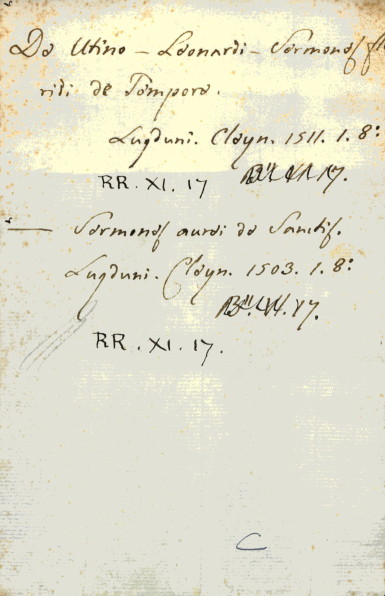 De Utino - Leonardi - Sermones flo
ridi de Tempore.
Lugduni. Cleyn. 1511. 1. 8:
RR. XI. 17
— Sermones aurei de Sanctis.
Lugduni. Cleyn. 1503. 1. 8:
RR. XI. 17.
C